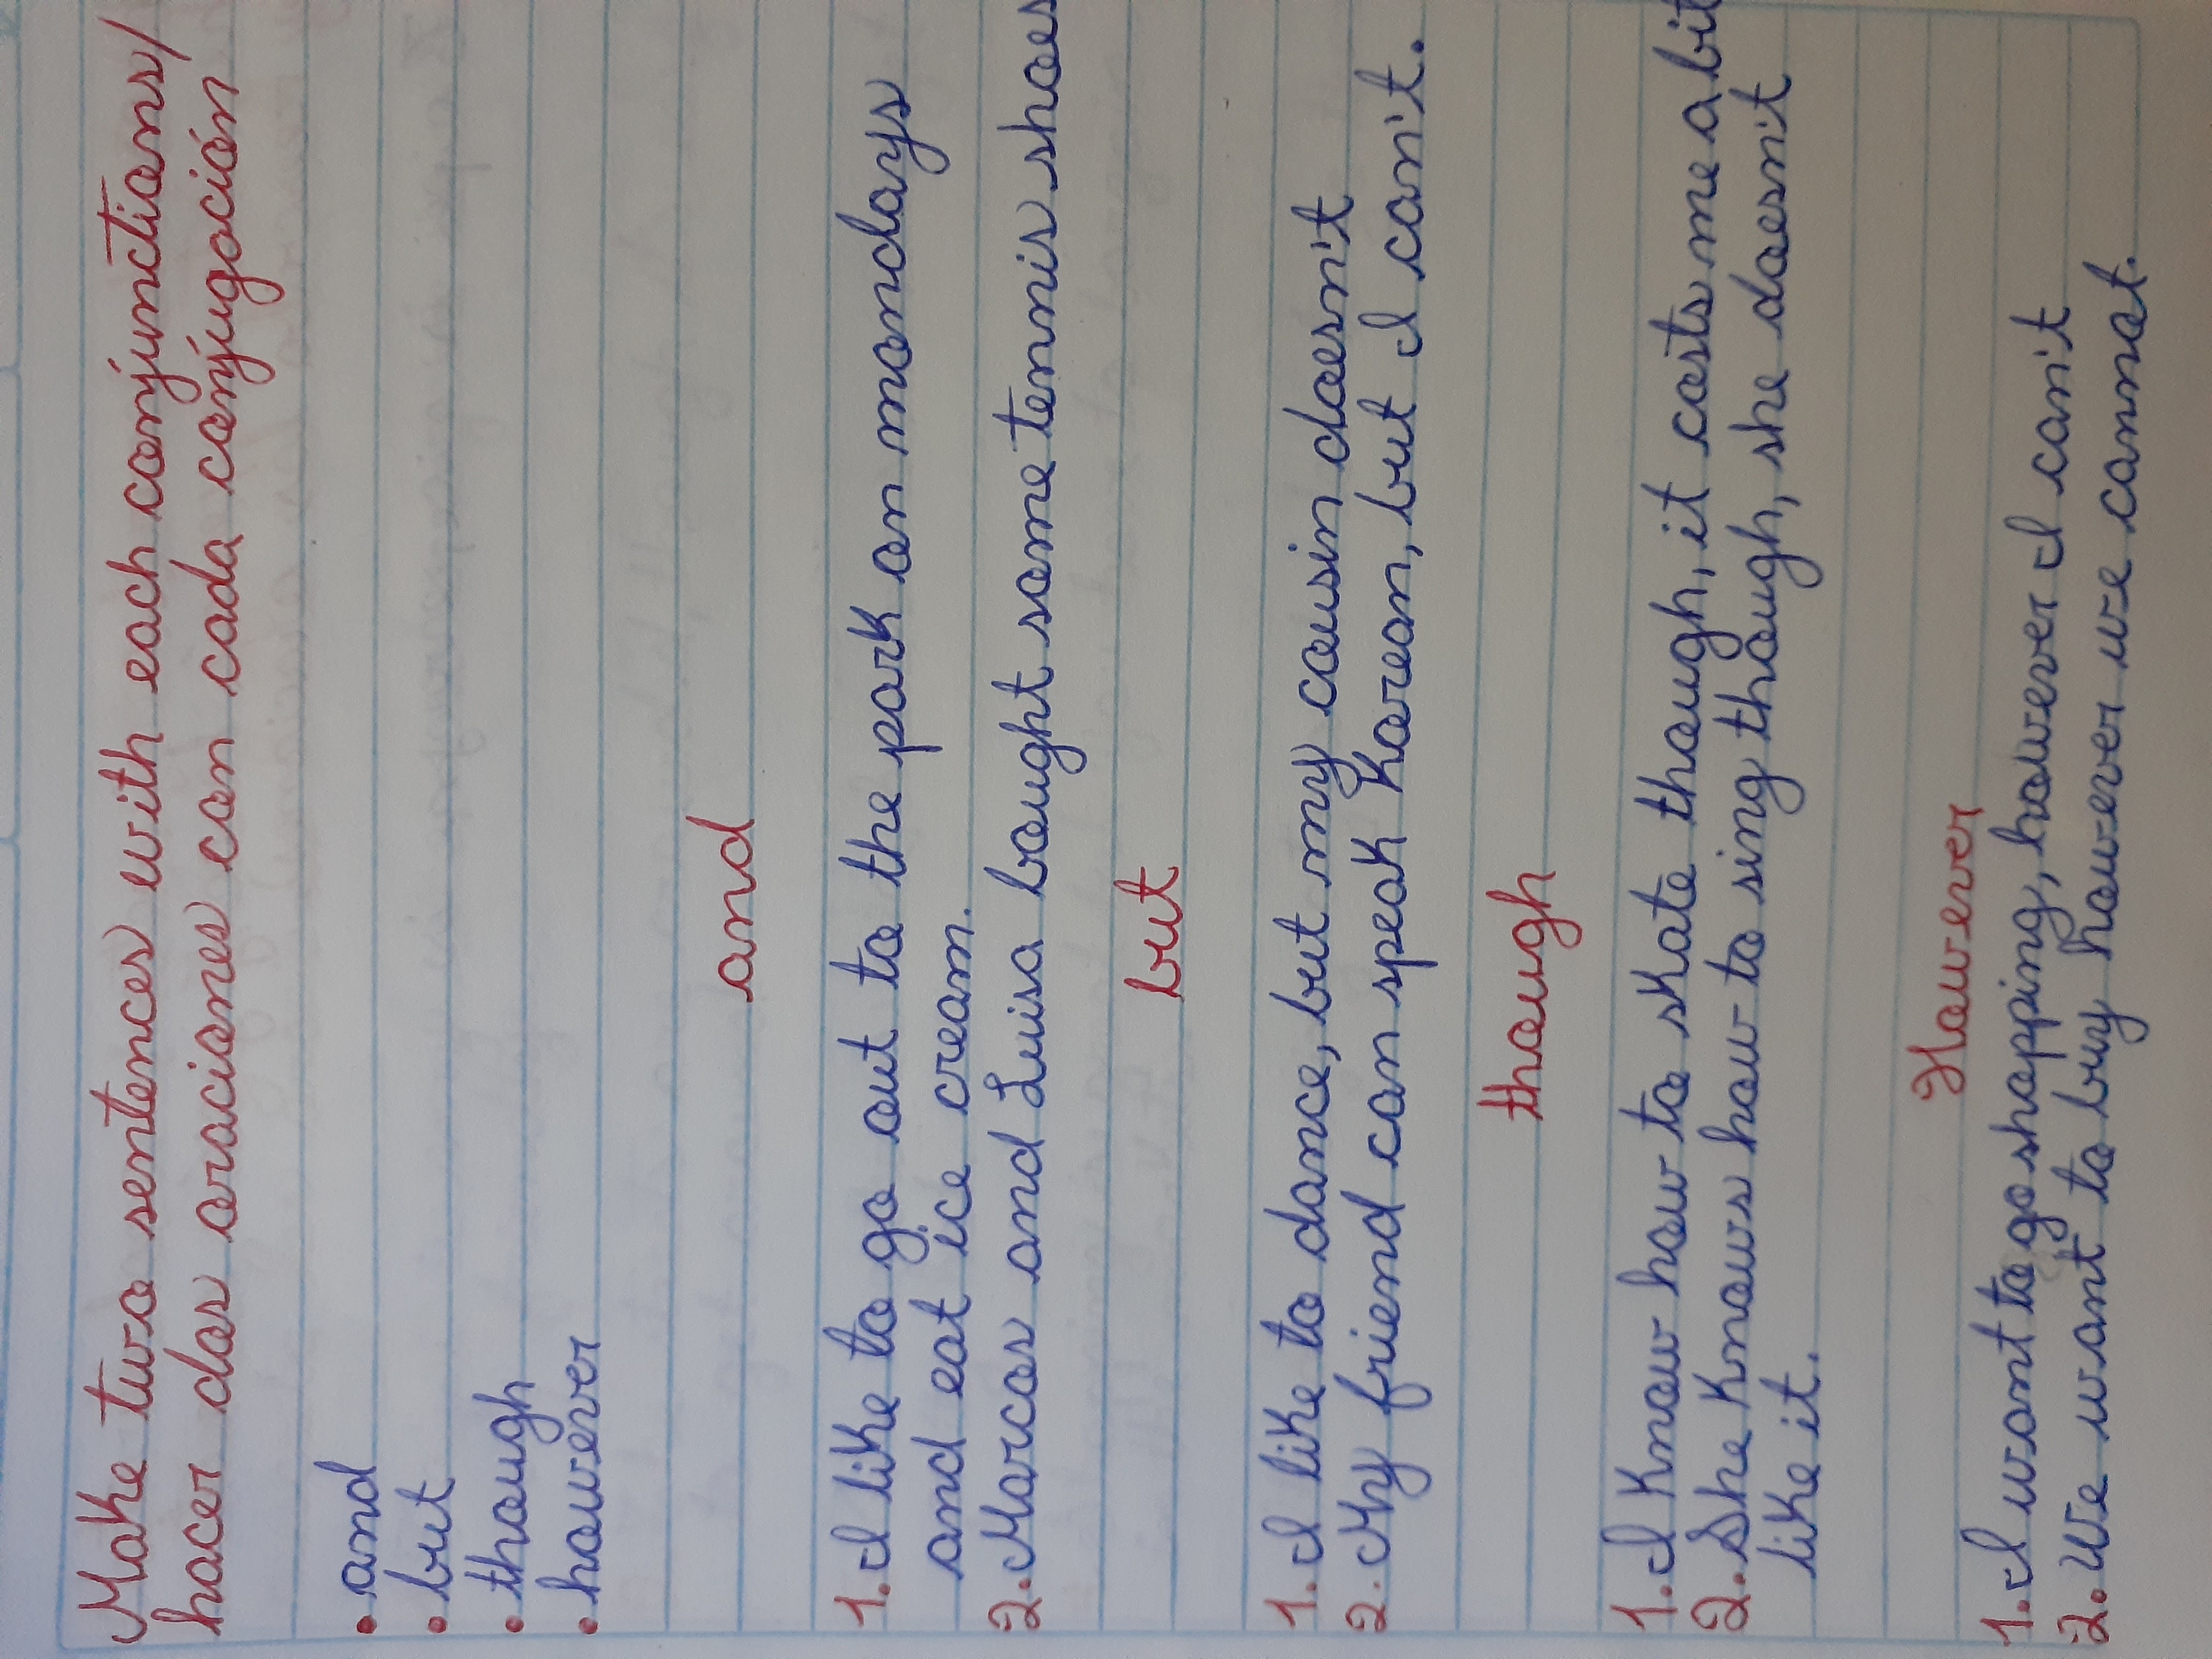 Make two sentences with each conjunctions/
hacer dos oraciones con cada conjugación
• and
• but
• though
• however
and
1. I like to go out to the park on mondays
and eat ice cream.
2. Marcos and Luisa bought some tennis shoes
but
1. I like to dance, but my cousin doesn't
2. My friend can speak Korean, but I can't.
though
1. I know how to skate though, it costs me a bit
2. She knows how to sing though, she doesn't
like it.
However
1. I want to go shopping, however I can't
2. We want to buy however we cannot.